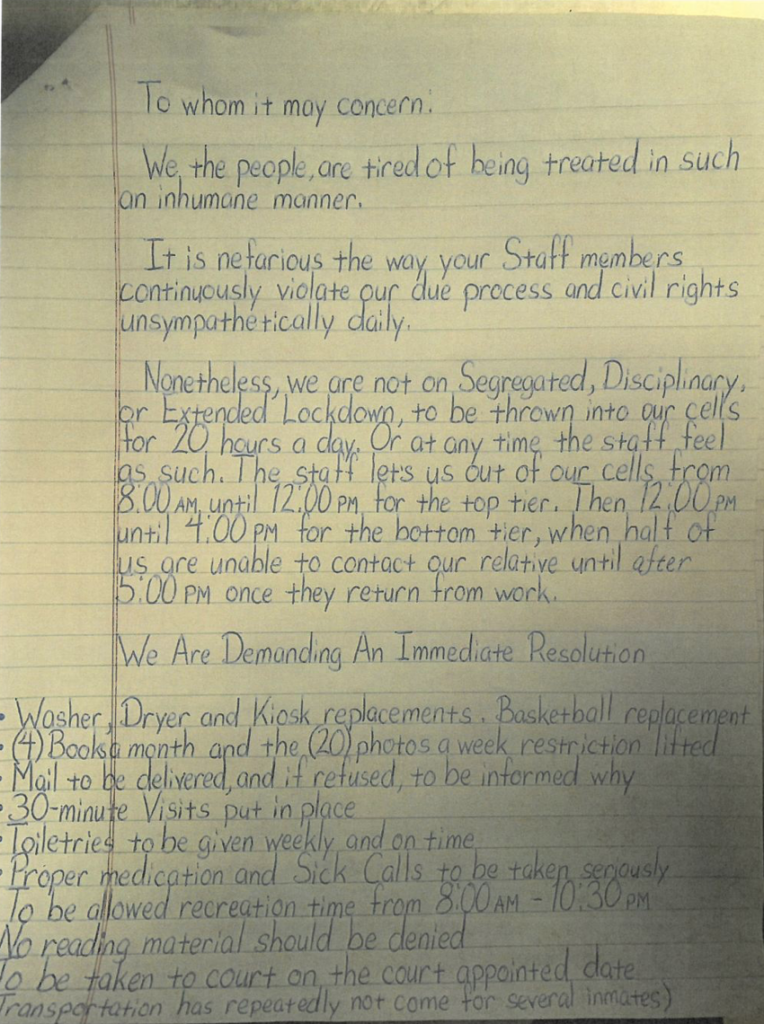 To whom it may concern:
We, the people, are tired of being treated in such
an inhumane manner.
It is nefarious the way your Staff members
continuously violate our due process and civil rights
unsympathetically daily.
Nonetheless, we are not on Segregated, Disciplinary,
or Extended Lockdown, to be thrown into our cells
for 20 hours a day. Or at any time the staff feel
as such. The staff lets us out of our cells from
8:00 AM until 12:00 PM for the top tier. Then 12:00 PM
until 4:00 PM for the bottom tier, when half of
us are unable to contact our relative until after
5:00 PM once they return from work.
We Are Demanding An Immediate Resolution
• Washer, Dryer and Kiosk replacements. Basketball replacement
• (4) Books a month and the (20) photos a week restriction lifted
• Mail to be delivered, and if refused, to be informed why
• 30-minute Visits put in place
• Toiletries to be given weekly and on time
• Proper medication and Sick Calls to be taken seriously
To be allowed recreation time from 8:00 AM - 10:30 PM
No reading material should be denied
To be taken to court on the court appointed date
Transportation has repeatedly not come for several inmates)